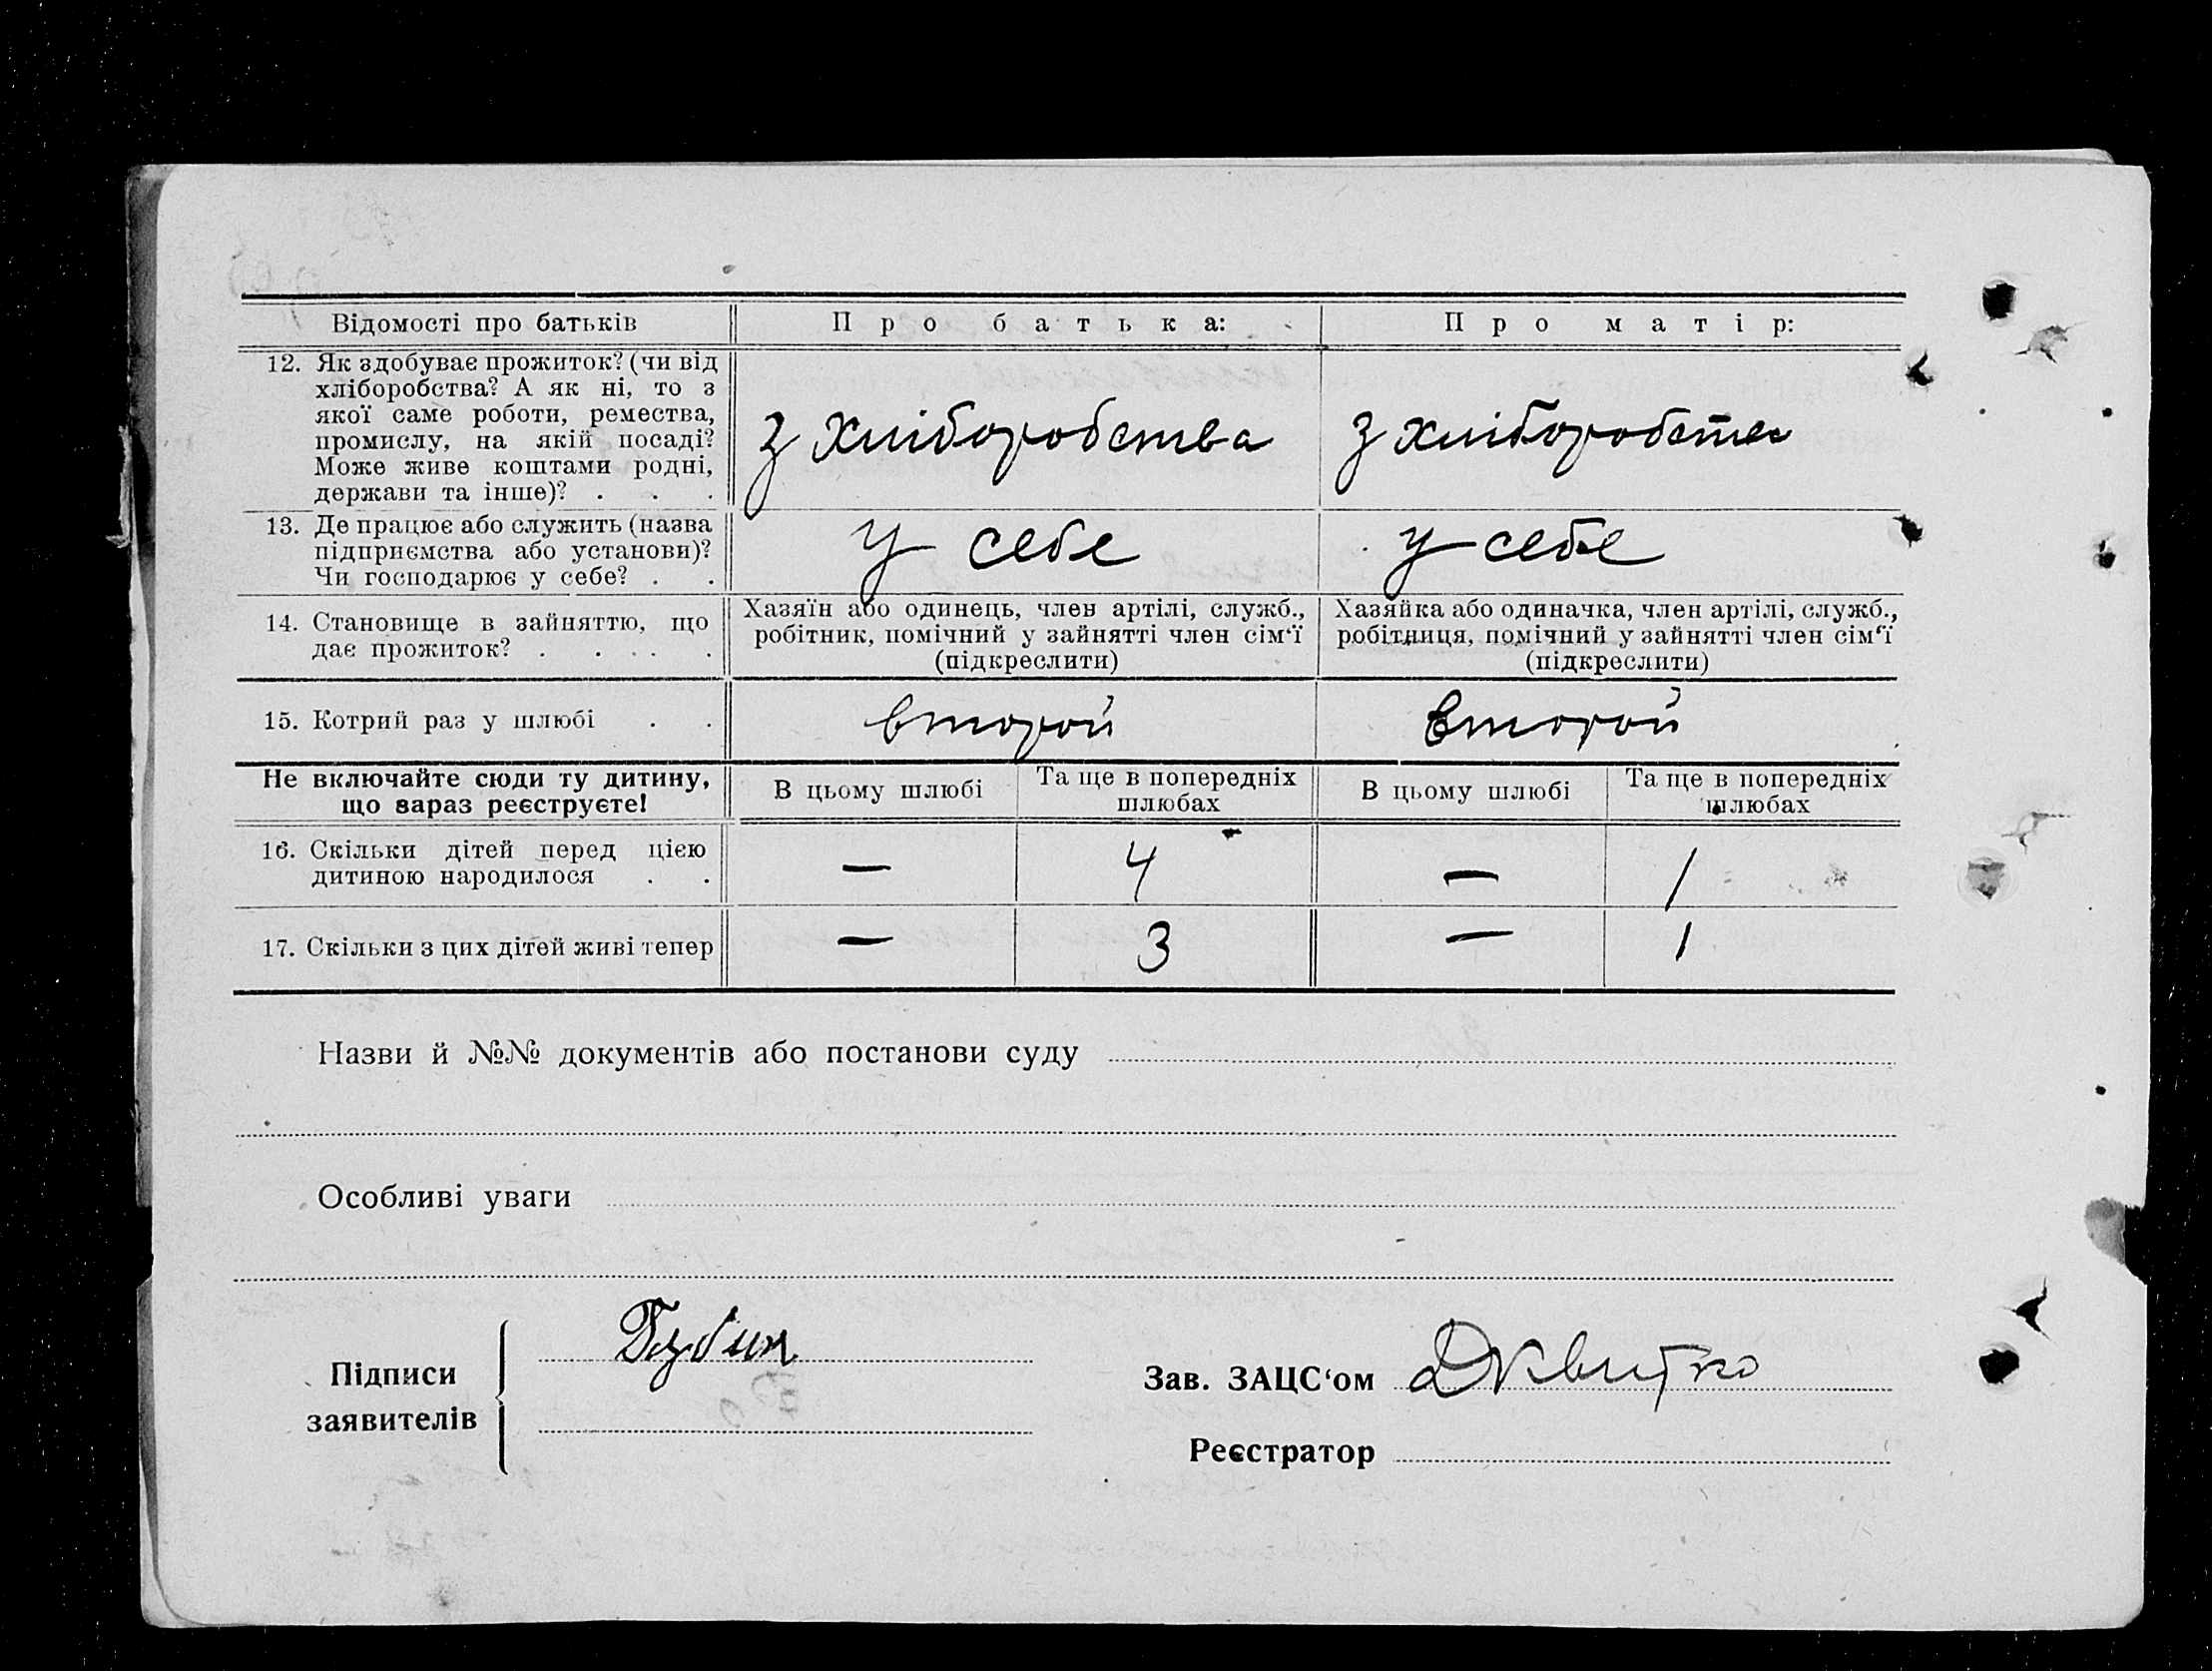 Відомості про батьків
Про батька:
Про матір:
12. Як здобуває прожиток? (чи від
хліборобства? А як ні, то з
якої саме роботи, ремества,
промислу, на якій посаді?
Може живе коштами родні,
держави та інше)? . . .
з хліборобства
з хліборобства
13. Де працює або служить (назва
підприємства або установи)?
Чи господарює у себе? . .
у себе
у себе
14. Становище в зайняттю, що
дає прожиток? . . . . .
Хазяїн або одинець, член артілі, служб.,
робітник, помічний у зайнятті член сім‘ї
(підкреслити)
Хазяйка або одиначка, член артілі, служб.,
робітниця, помічний у зайнятті член сім‘ї
(підкреслити)
15. Котрий раз у шлюбі . .
второй
второй
Не включайте сюди ту дитину,
що зараз реєструєте!
В цьому шлюбі
Та ще в попередніх
шлюбах
В цьому шлюбі
Та ще в попередніх
шлюбах
16. Скільки дітей перед цією
дитиною народилося . .
— 4 — 1
17. Скільки з цих дітей живі тепер
— 3 — 1
Назви й №№ документів або постанови суду
Особливі уваги
Підписи
заявителів
Зав. ЗАЦС‘ом
Реєстратор